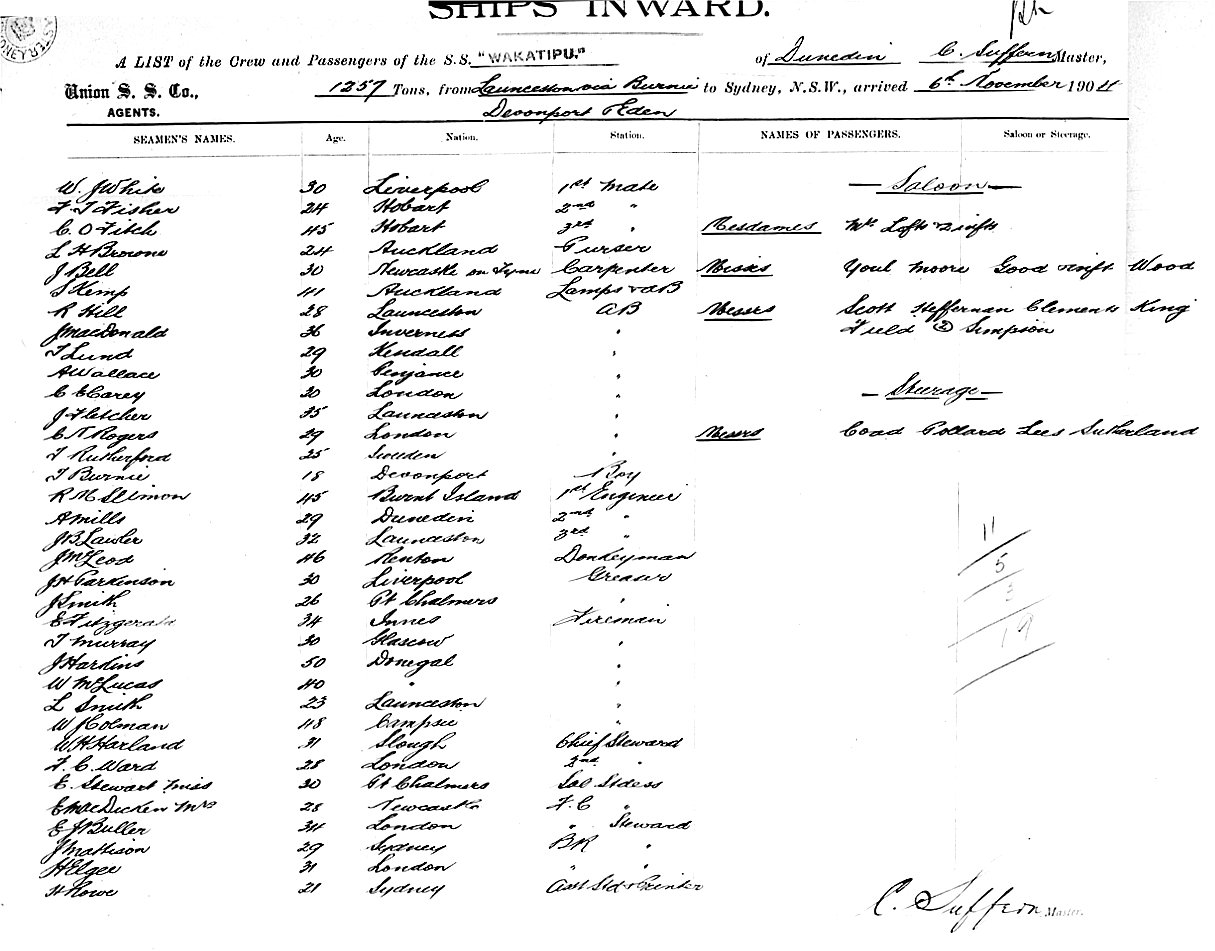 SHIPS INWARD.
A LIST of the Crew and Passengers of the S.S. "WAKATIPU." of Dunedin C. Suffern Master,
Union S. S. Co., 1257 Tons, from Launceston via Burnie to Sydney, N.S.W., arrived 6th November 1904
AGENTS. Devonport & Eden
SEAMEN'S NAMES. Age. Nation. Station. NAMES OF PASSENGERS. Saloon or Steerage.
W. J White 30 Liverpool 1st Mate — Saloon —
F T Fisher 24 Hobart 2nd "
C. O Fitch 45 Hobart 3rd " Mesdames Mrs Loft & 2 infts
L H Browne 24 Auckland Purser
J Bell 30 Newcastle on Tyne Carpenter Misses Youl Moore Good & inft Wood
S Kemp 41 Auckland Lamps & AB
R Hill 28 Launceston AB Messrs Scott Heffernan Clements King
J MacDonald 36 Inverness " Field (2) Simpson
T Lund 29 Kendall "
A Wallace 30 Penzance "
C E Carey 30 London " — Steerage —
J Fletcher 35 Launceston "
C N Rogers 29 London " Messrs Coad Pollard Lees Sutherland
T Rutherford 25 Sweden "
T Burnie 18 Devonport Boy
R 45 Burnt Island 1st Engineer
A Mills 29 Dunedin 2nd "
J B Lawler 32 Launceston 3rd "
J McLeod 46 Renton Donkeyman
J H Parkinson 30 Liverpool Greaser
J Smith 26 Pt Chalmers "
E Fitzgerald 34 Innes Fireman
T Murray 30 Glascow "
J Hardins 50 Donegal "
W McLucas 40 " "
L Smith 23 Launceston "
W J Colman 48 Campsie "
W H Harland 31 Slough Chief Steward
F. C. Ward 28 London 2nd "
E. Stewart Miss 30 Pt Chalmers Sal Stdess
E MacDicken Mrs 28 Newcastle F. C "
E J Buller 34 London " Steward
J Mattison 29 Sydney BR "
H Elgee 31 London " "
H Rowe 21 Sydney Asst Std & Printer
11
5
3
19
C. Suffern Master.